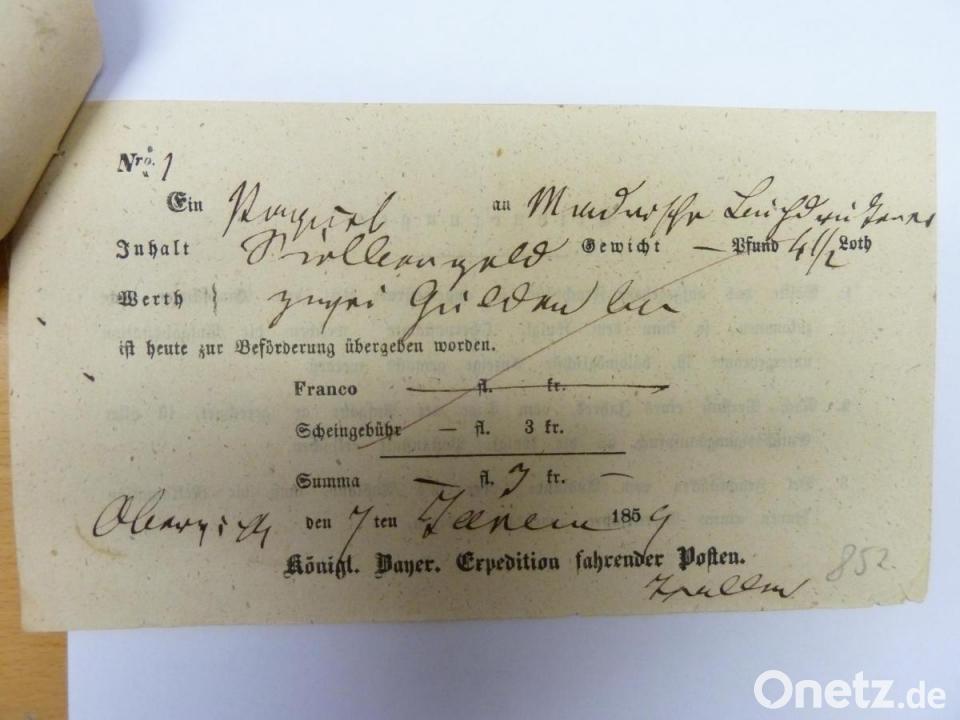 Nro. 1
Ein Paquet an Mandrische Buchdruckerei
Inhalt Silbergeld Gewicht — Pfund 4 1/2 Loth
Werth zwei Gulden
ist heute zur Beförderung übergeben worden.
Franco — fl. kr. —
Scheingebühr — fl. 3 kr.
Summa — fl. 3 kr. —
den 7ten 1859
Königl. Bayer. Expedition fahrender Posten.
852.
Onetz.de